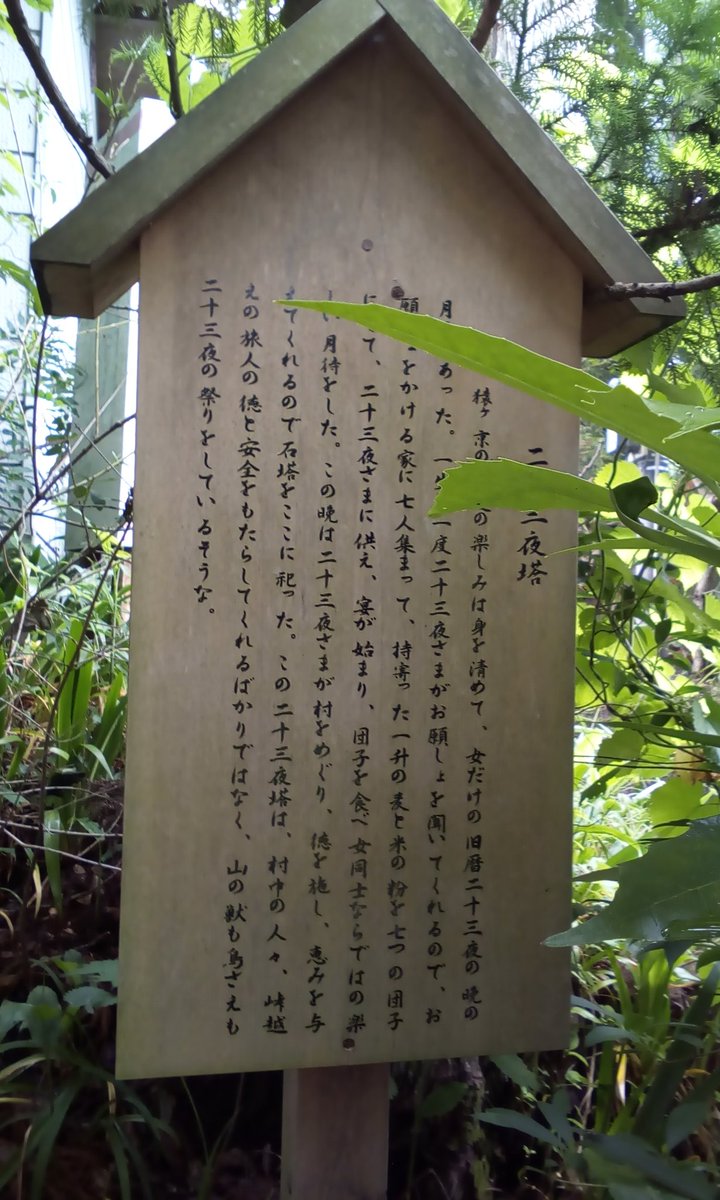 二 三夜塔
猿ヶ京の の楽しみは身を清めて、女だけの旧暦二十三夜の晩の
月 あった。一 一度二十三夜さまがお願しょを聞いてくれるので、お
願 をかける家に七人集まって、持寄った一升の麦と米の粉を七つの団子
に て、二十三夜さまに供え、宴が始まり、団子を食べ女同士ならではの楽
しい月待をした。この晩は二十三夜さまが村をめぐり、徳を施し、恵みを与
えてくれるので石塔をここに祀った。この二十三夜塔は、村中の人々、峠越
えの旅人の徳と安全をもたらしてくれるばかりではなく、山の獣も鳥さえも
二十三夜の祭りをしているそうな。